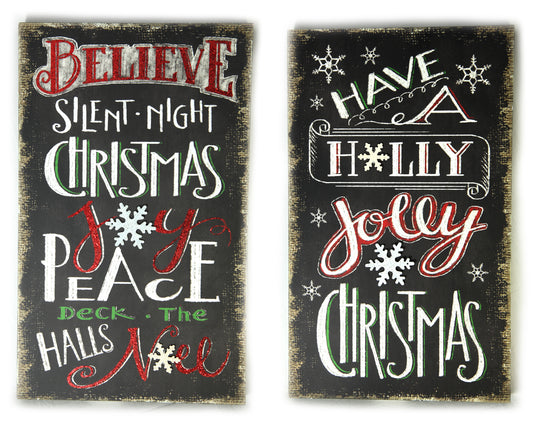 BELIEVE
SILENT · NIGHT
CHRISTMAS
Joy
PEACE
Deck · The
HALLS Noel
HAVE
A
HOLLY
Jolly
CHRISTMAS